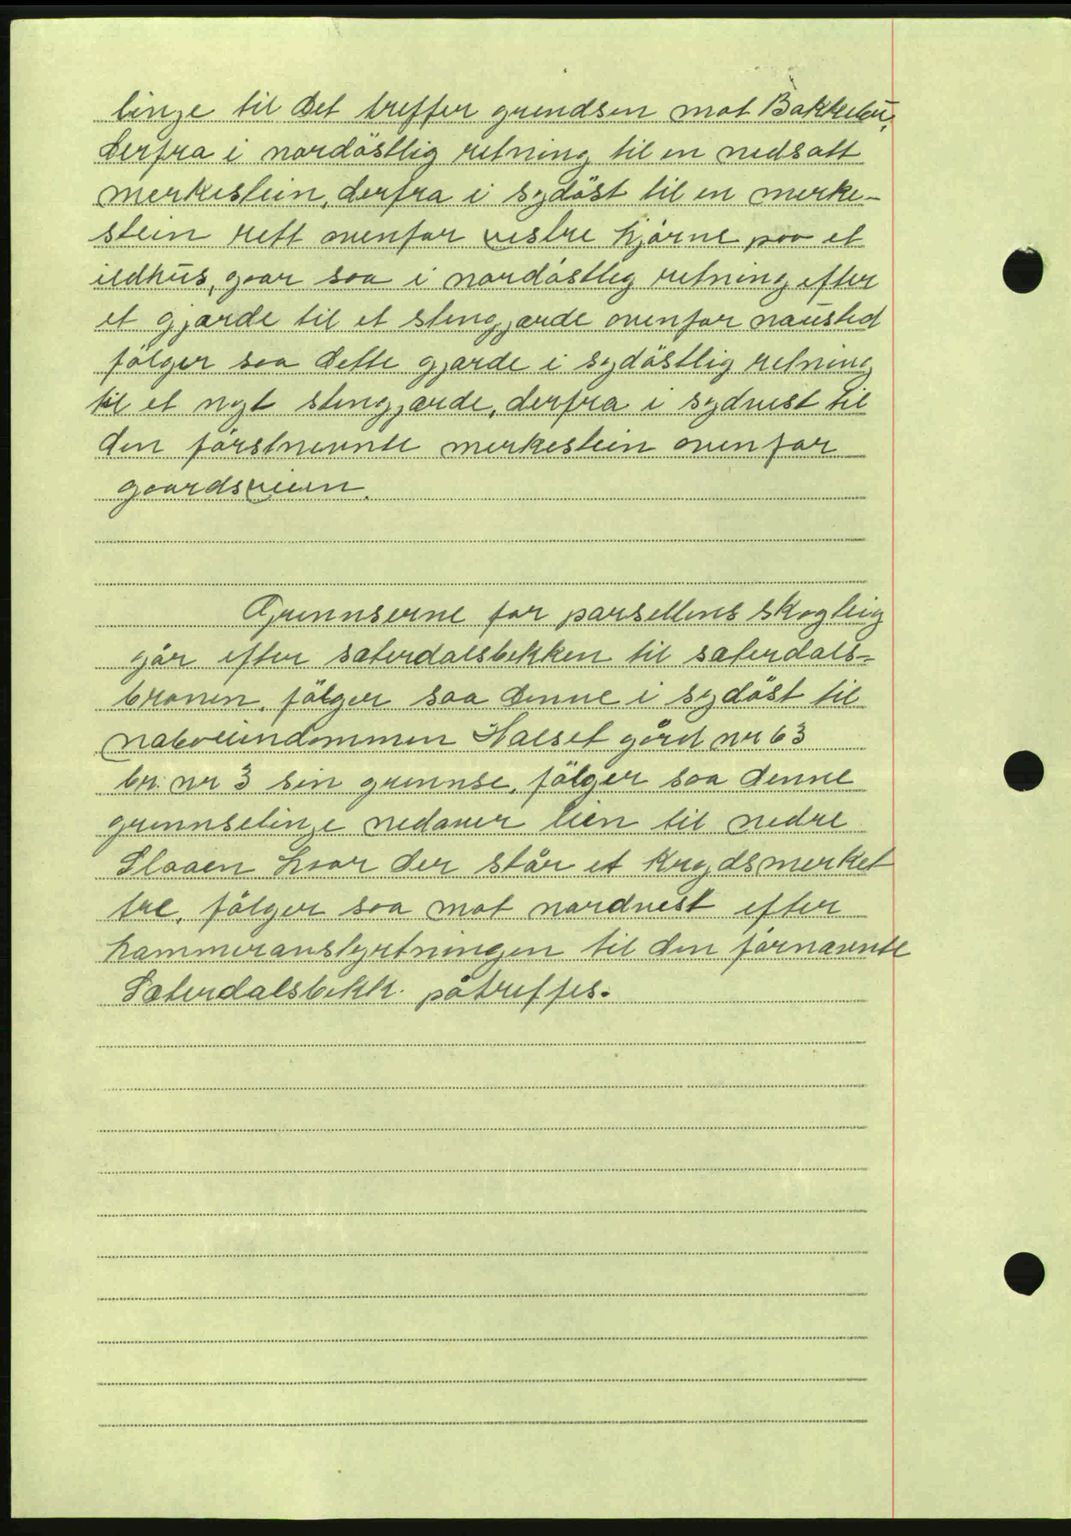 linje til det treffer grendsen mot Bakkebu,
derfra i nordöstlig retning til en nedsatt
merkestein, derfra i sydöst til en merke-
stein rett ovenfor vestre hjörne paa et
ildhus, gaar saa i nordöstleg retning efter
et gjærde til et stengjærde ovenfor nausted
fölger saa dette gjærde i sydöstlig retning
til et nyt stengjærde, derfra i sydvest til
den förstnevnte merkestein ovenfor
gaardsveien.
Grennserne for parsellens skogteig
går efter sæterdalsbekken til sæterdals-
bronen, fölger saa denne i sydöst til
naboeiendommen Halset gård nr 63
br. nr 3 sin grennse, fölger saa denne
grennselinje nedover lien til nedre
Slaaen hvor der står et krydsmerket
tre, fölger saa mot nordvest efter
hammeranstyrtningen til den förnævnte
Sæterdalsbekk påtreffes.